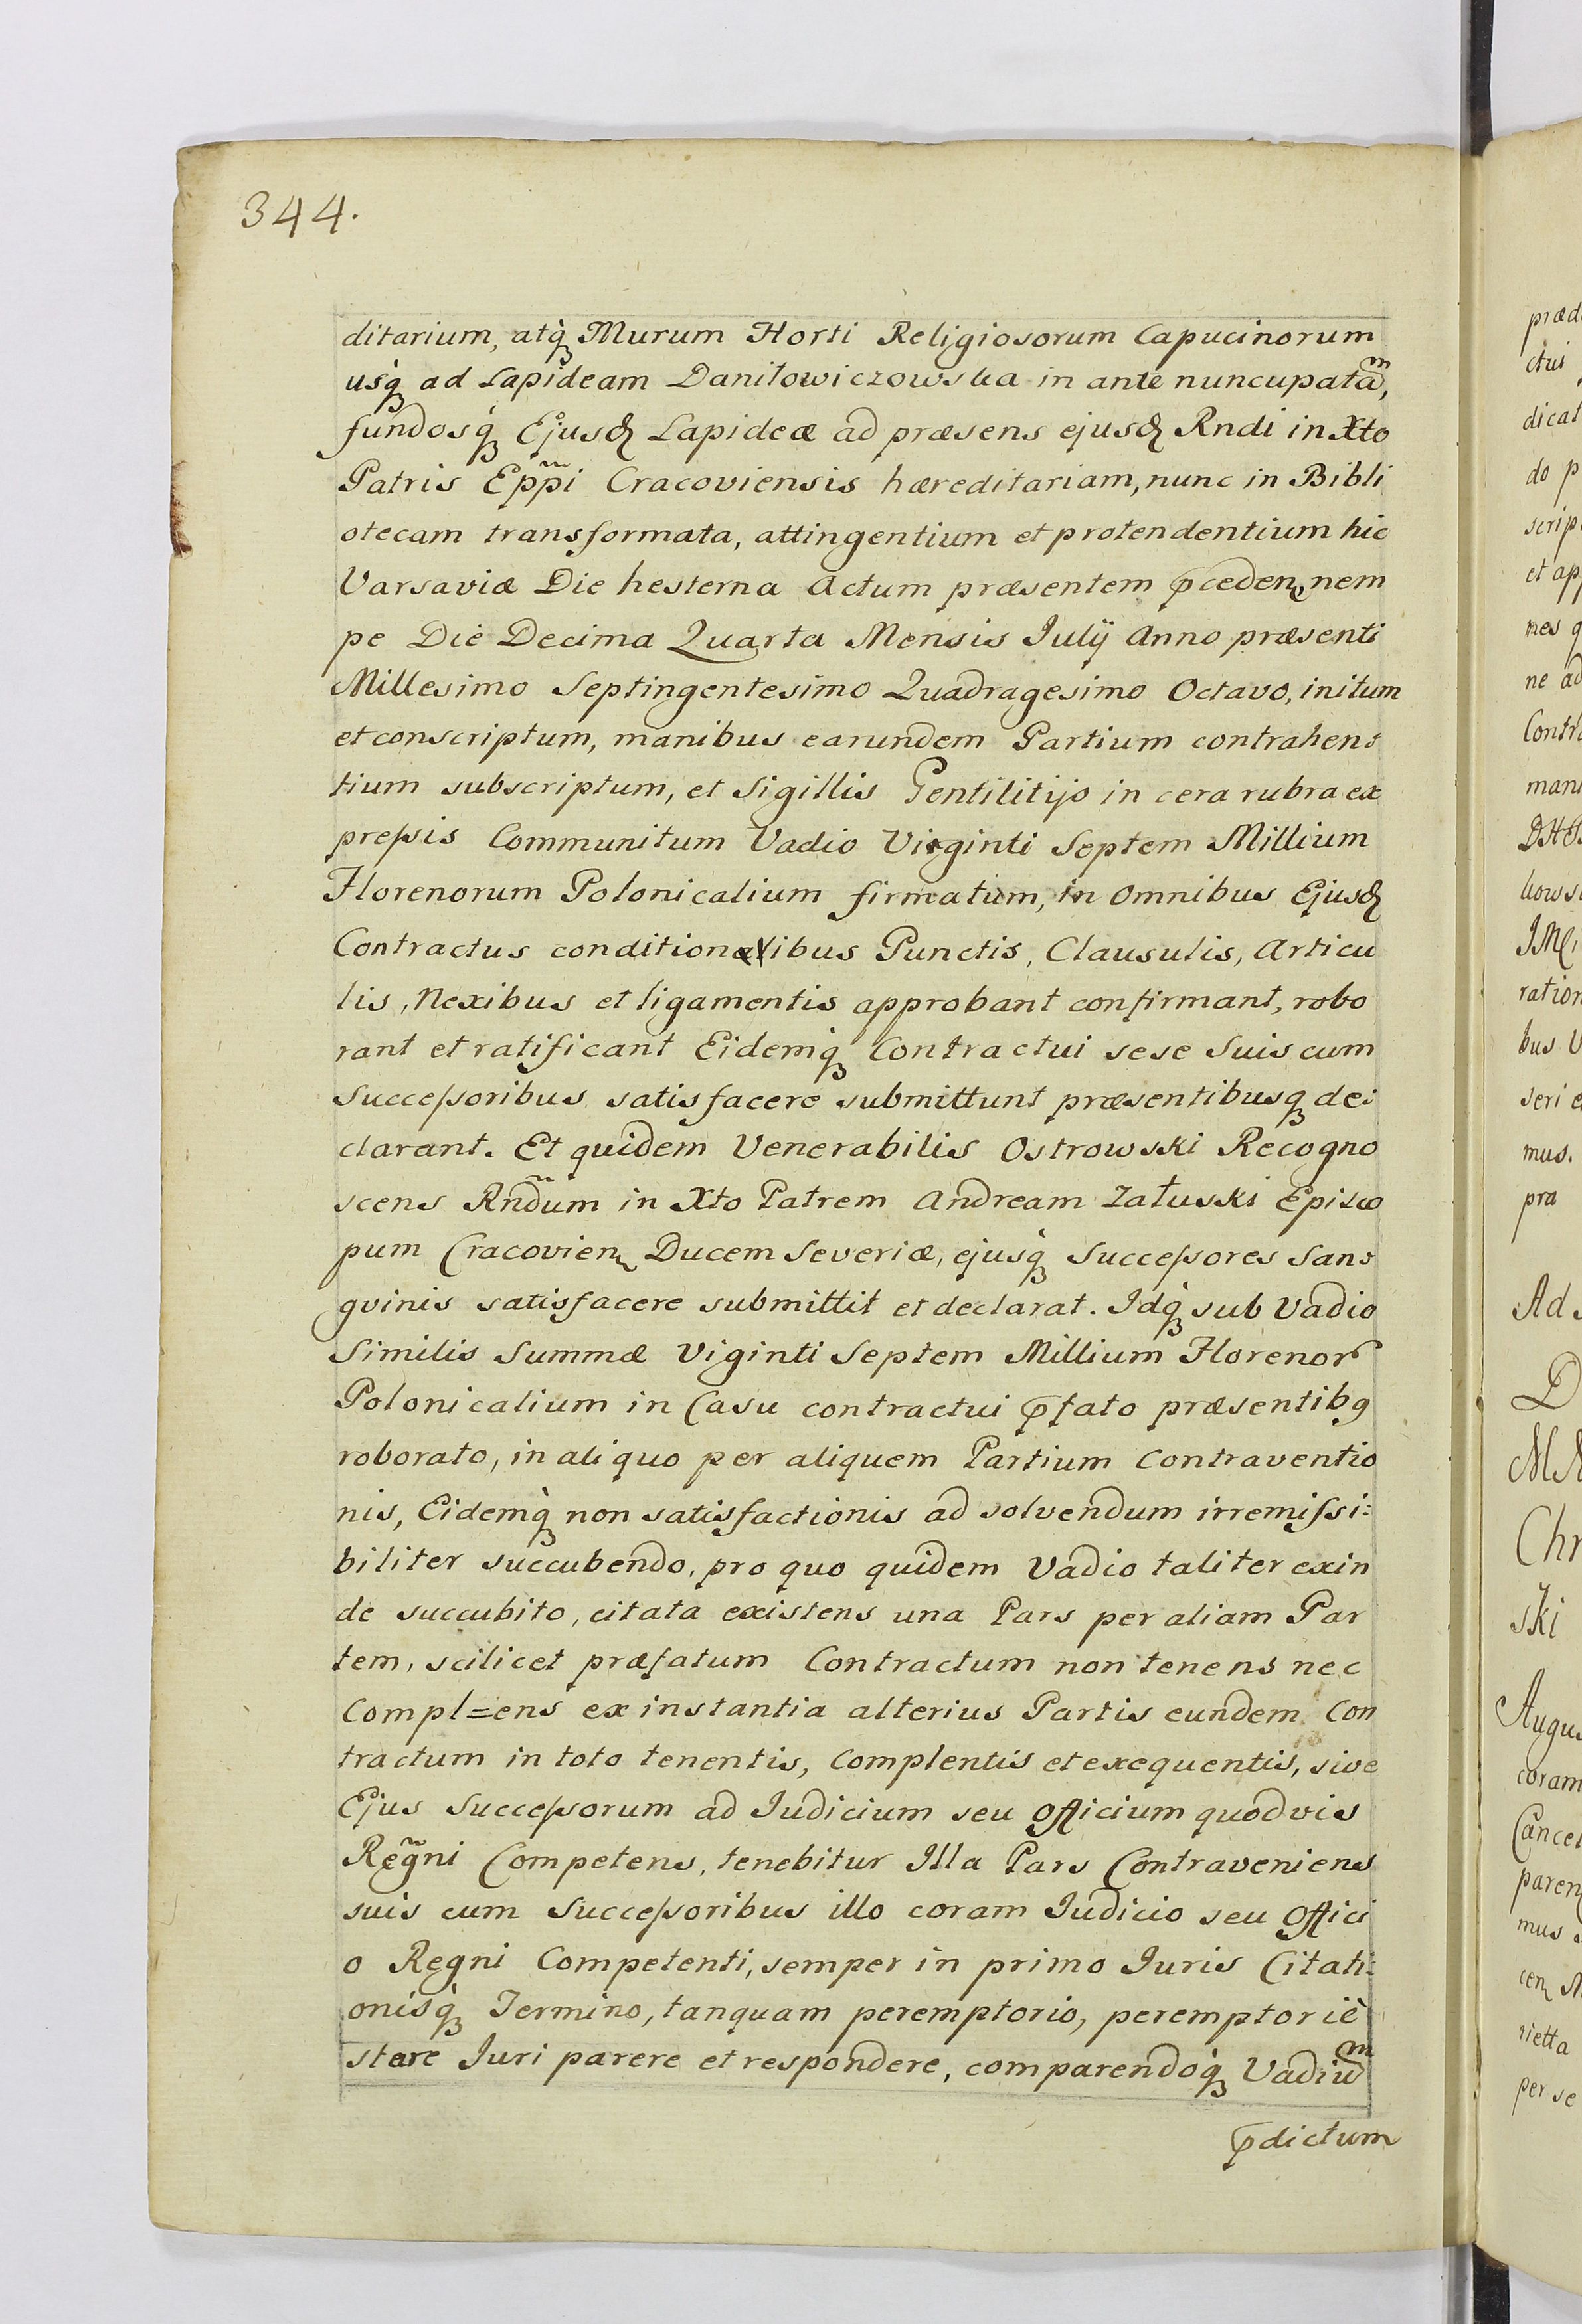 344.
ditarium, atq̀ꝫ Murum Horti Religiosorum Capucinorum
usq̀ꝫ ad Lapideam Daniłowiczowska in ante nuncupatam,
fundosq̀ꝫ Ejusđ Lapideæ ad præsens ejusđ Rndi in Xto
Patris Epp̃i Cracoviensis hæreditariam, nunc in Bibli
otecam transformata, attingentium et protendentium hic
Varsaviæ Die hesterna Actum præsentem p̄ceden, nem
pe Die Decima Quarta Mensis Julÿ Anno præsenti
Millesimo Septingentesimo Quadragesimo Octavo, initum
et conscriptum, manibus earundem Partium contrahen:
tium subscriptum, et Sigillis Gentilitijs in cera rubra ex
preſsis Communitum Vadio Virginti Septem Millium
Florenorum Polonicalium firmatum, in omnibus Ejusđ
Contractus conditionalibus Punctis, Clausulis, Articu
lis, Nexibus et ligamentis approbant confirmant, robo
rant et ratificant Eidemq̀ꝫ Contractui sese Suis cum
Succeſsoribus satisfacere submittunt præsentibusqꝫ de:
clarant. Et quidem Venerabilis Ostrowski Recogno
scens Rñdum in Xto Patrem Andream Załuski Episco
pum Cracovien Ducem Severiæ, ejusq̀ꝫ Succeſsores San:
gvinis satisfacere submittit et declarat. Idq̀ꝫ sub Vadio
Similis Summæ Viginti Septem Millium Florenorꝫ
Polonicalium in Casu contractui p̄fato præsentibꝯ
roborato, in aliquo per aliquem Partium Contraventio
nis, Eidemq̀ꝫ non satisfactionis ad solvendum irremiſsi:
biliter succubendo, pro quo quidem Vadio taliter exin
de succubito, citata existens una Pars per aliam Par
tem, scilicet præfatum Contractum non tenens nec
Compl=ens ex instantia alterius Partis eundem Con
tractum in toto tenentis, Complentis et exequentis, sive
Ejus Succeſsorum ad Judicium seu Officium quodvis
Reg̃ni Competens, tenebitur Illa Pars Contraveniens
suis cum Succeſsoribus illo coram Judicio seu Offici
o Regni Competenti, semper in primo Juris Citati:
onisq̀ꝫ Termino, tanquam peremptorio, peremptoriè
stare Juri parere et respondere, comparendoq̀ꝫ Vadium
p̄dictum
præd
ctui
dicat
do p
scrip
et ap
nes q
ne ad
Contr
man
ration
bus V
seri e
mus.
pra
Ad
D
Chr
ski
Augus
coram
Cancel
paren
mus
rietta
per se